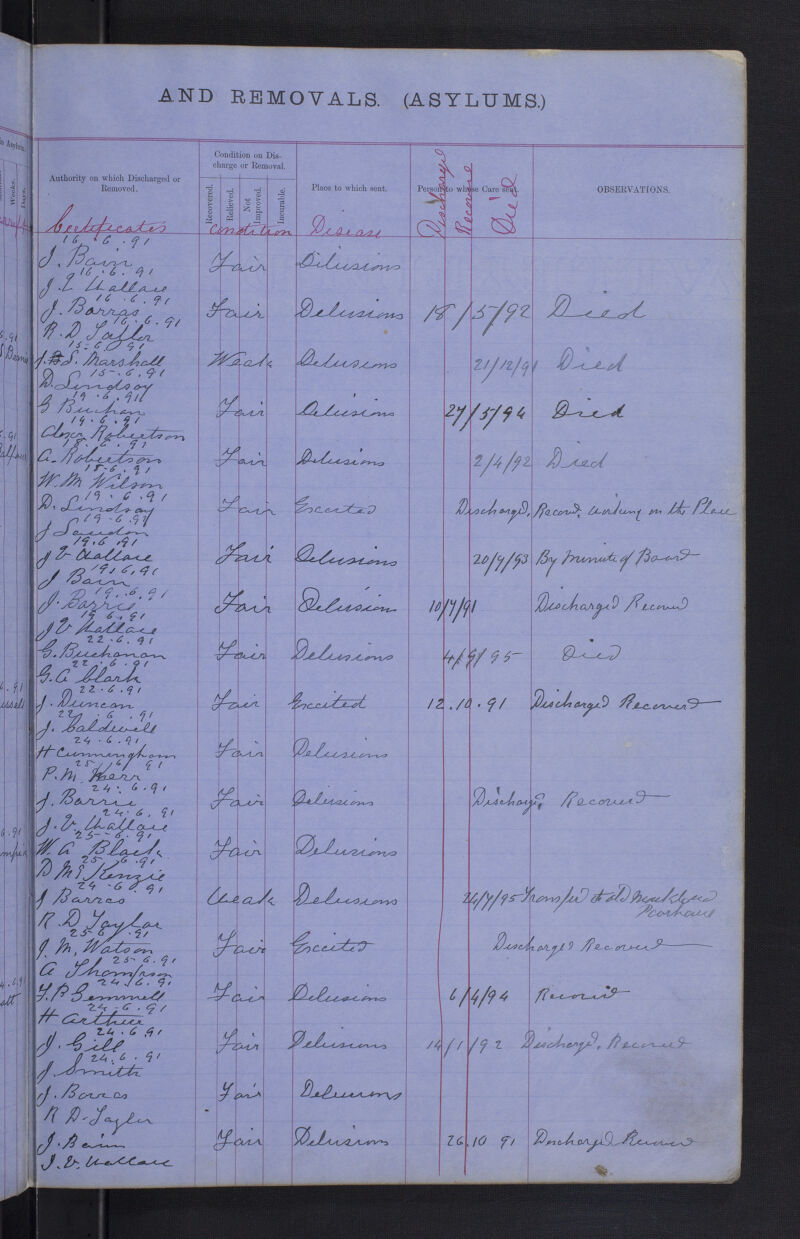 AND REMOVALS. (ASYLUMS.)
in Asylum.
Weeks.
Days.
Authority on which Discharged or Removed.
Condition on Discharge or Removal.
Recovered.
Relieved.
Not Improved.
Incurable.
Place to which sent.
Person to whose Care sent.
OBSERVATIONS.
Certificates Condition Disease Discharged Recovered Died
16.6.91
J. Bain Fair Dilusions
16.6.91
J. V. Wallace
16.6.91
J. Barras Fair Delusions 18/5/92 Died
16.6.91
R. D. Taylor
15.6.91
J. S. Marshall Weak Delusions 21/12/91 Died
15.6.91
D. Lindsay
19.6.91
G Buchan Fair Delusions 27/5/94 Died
19.6.91
Alexr Robertson
18.6.91
A. Robertson Fair Delusions 2/4/92 Died
18.6.91
W. M. Wilson
19.6.91
D. Lindsay Fair Excited Discharged, Recovd, working on the Place
19.6.91
J Loudon
19.6.91
J V Wallace Fair Delusions 20/9/93 By Minute of Board
19.6.91
J Bain
19.6.91
J. Barrie Fair Delusion 10/7/91 Discharged Recoverd
19.6.91
J V Wallace
22.6.91
G. Buchanan Fair Delusions 4/9/95 Died
22.6.91
G. A Clark
22.6.91
J. Duncan Fair Excited 12.10.91 Discharged Recovered
22.6.91
J. Caldwell
24.6.91
H Cunningham Fair Delusions
25/6/91
P. M. Kerr
24.6.91
J. Barrie Fair Delusions Discharged, Recovered
24.6.91
J. V. Wallace
25.6.91
W. A Black Fair Delusions
25.6.91
D McKenzie
24.6.91
J Barras Weak Delusions 24/7/95 Transfer to old Monkland Poorhouse
R. D Taylor
25.6.91
J. M. Watson Fair Excited Discharged Recovered
25.6.91
A Thompson
24.6.91
J. P. Gemmell Fair Delusions 6/4/94 Recovered
24.6.91
H Arthur
24.6.91
J. Gill Fair Delusions 14/1/92 Discharged, Recovered
24.6.91
J Smith
J. Barras Fair Delusions
R D. Taylor
J. Bain Fair Delusions 26.10 91 Discharged Recoverd
J. V. Wallace